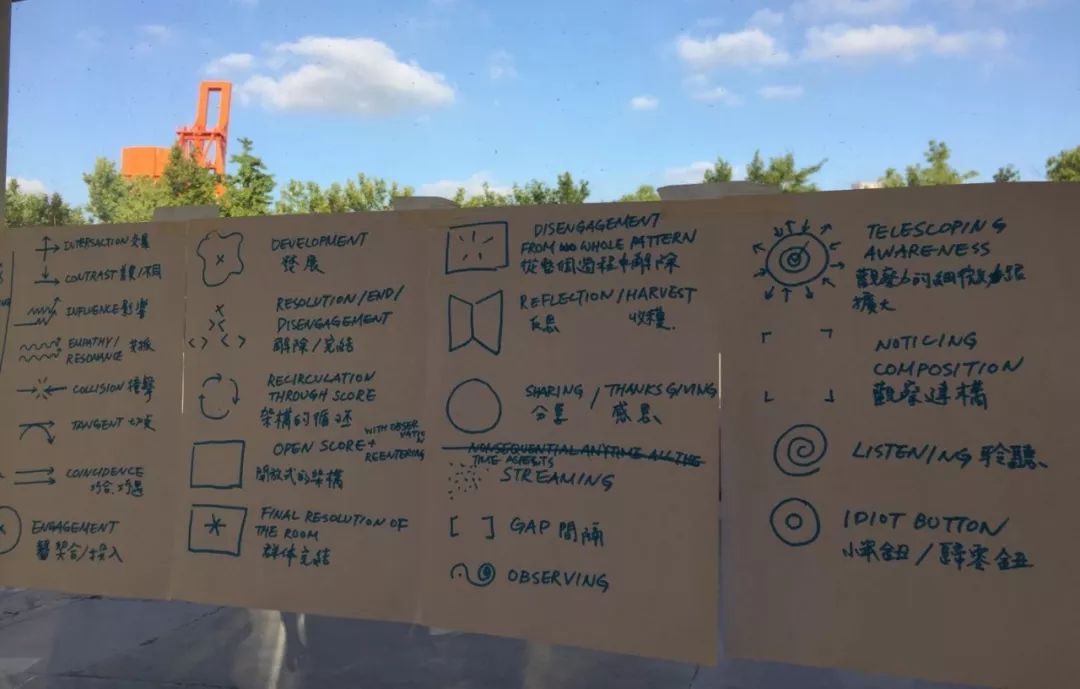 INTERSACTION 交集
CONTRAST 差異/不同
INFLUENCE 影響
EMPATHY/
RESONANCE
COLLISION 撞擊
TANGENT
COINCIDENCE
巧合.巧遇
ENGAGEMENT
契合/投入
DEVELOPMENT
發展
RESOLUTION/END/
DISENGAGEMENT
解除/完結
RECIRCULATION
THROUGH SCORE
架構的循环
OPEN SCORE+
WITH OBSER
VATION
REENTERING
開放式的架構
FINAL RESOLUTION OF
THE ROOM
群体完結
DISENGAGEMENT
FROM WHOLE PATTERN
從整個過程中解除
REFLECTION/HARVEST
反思 收穫.
SHARING / THANKS GIVING
分享 / 感恩
NONSEQUENTIAL ANYTIME ALL THE
TIME ASPECTS
STREAMING
GAP 間隔
OBSERVING
TELESCOPING
AWARENESS
觀察的細微
擴大
NOTICING
COMPOSITION
觀察建構
LISTENING 聆聽、
IDIOT BUTTON
小笨鈕/歸零鈕